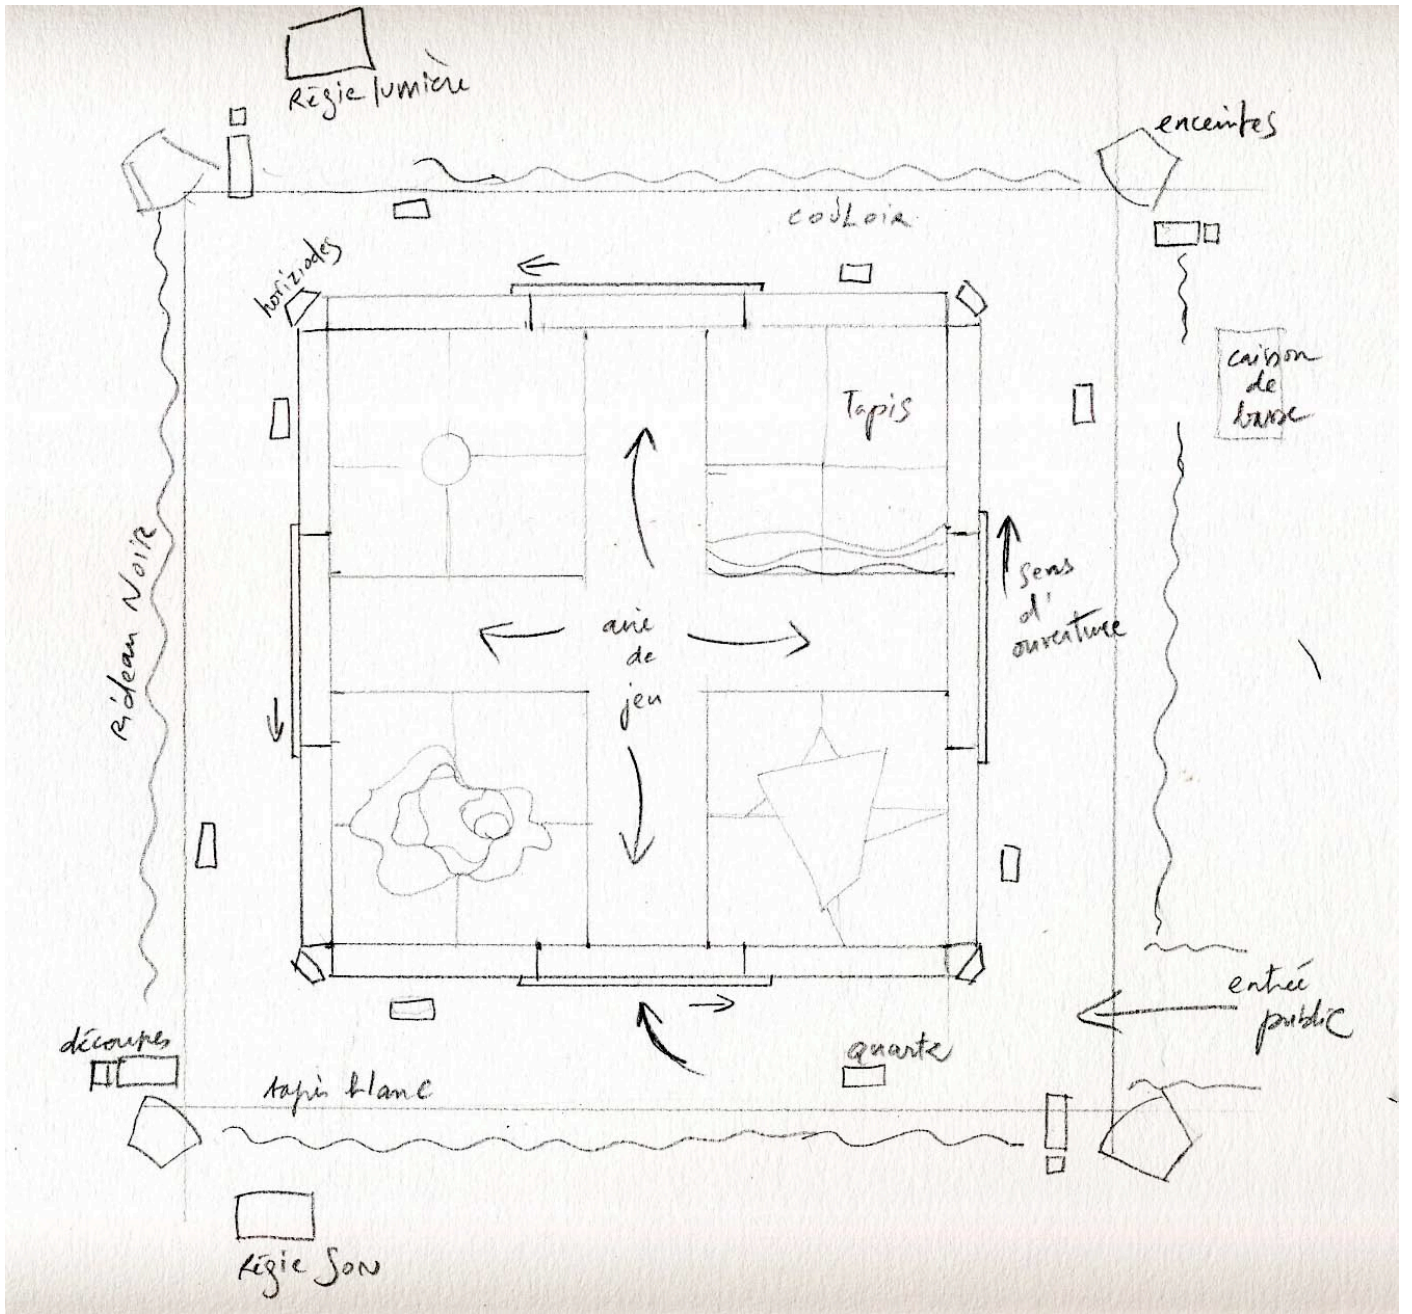 Régie lumière
enceintes
couloir
horiziodes
caisson
de
basse
Tapis
Rideau Noir
sens
d'
ouverture
aire
de
jeu
entrée
public
découpes
quartz
tapis blanc
Régie Son